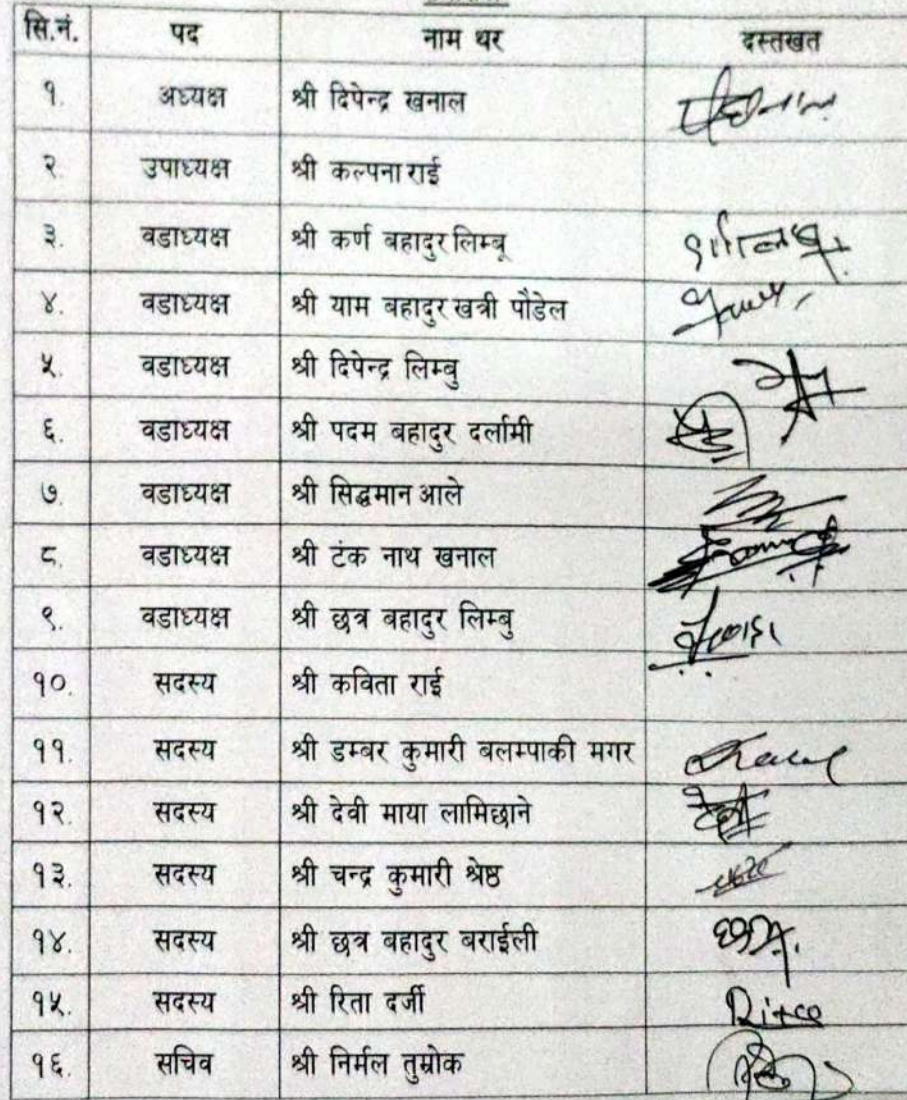 सि.नं. पद नाम थर दस्तखत
१. अध्यक्ष श्री दिपेन्द्र खनाल
२. उपाध्यक्ष श्री कल्पना राई
३. वडाध्यक्ष श्री कर्ण बहादुर लिम्बू
४. वडाध्यक्ष श्री याम बहादुर खत्री पौडेल
५. वडाध्यक्ष श्री दिपेन्द्र लिम्बु
६. वडाध्यक्ष श्री पदम बहादुर दर्लामी
७. वडाध्यक्ष श्री सिद्धमान आले
८. वडाध्यक्ष श्री टंक नाथ खनाल
९. वडाध्यक्ष श्री छत्र बहादुर लिम्बु
१०. सदस्य श्री कविता राई
११. सदस्य श्री डम्बर कुमारी बलम्पाकी मगर
१२. सदस्य श्री देवी माया लामिछाने
१३. सदस्य श्री चन्द्र कुमारी श्रेष्ठ
१४. सदस्य श्री छत्र बहादुर बराईली
१५. सदस्य श्री रिता दर्जी Rita
१६. सचिव श्री निर्मल तुम्रोक